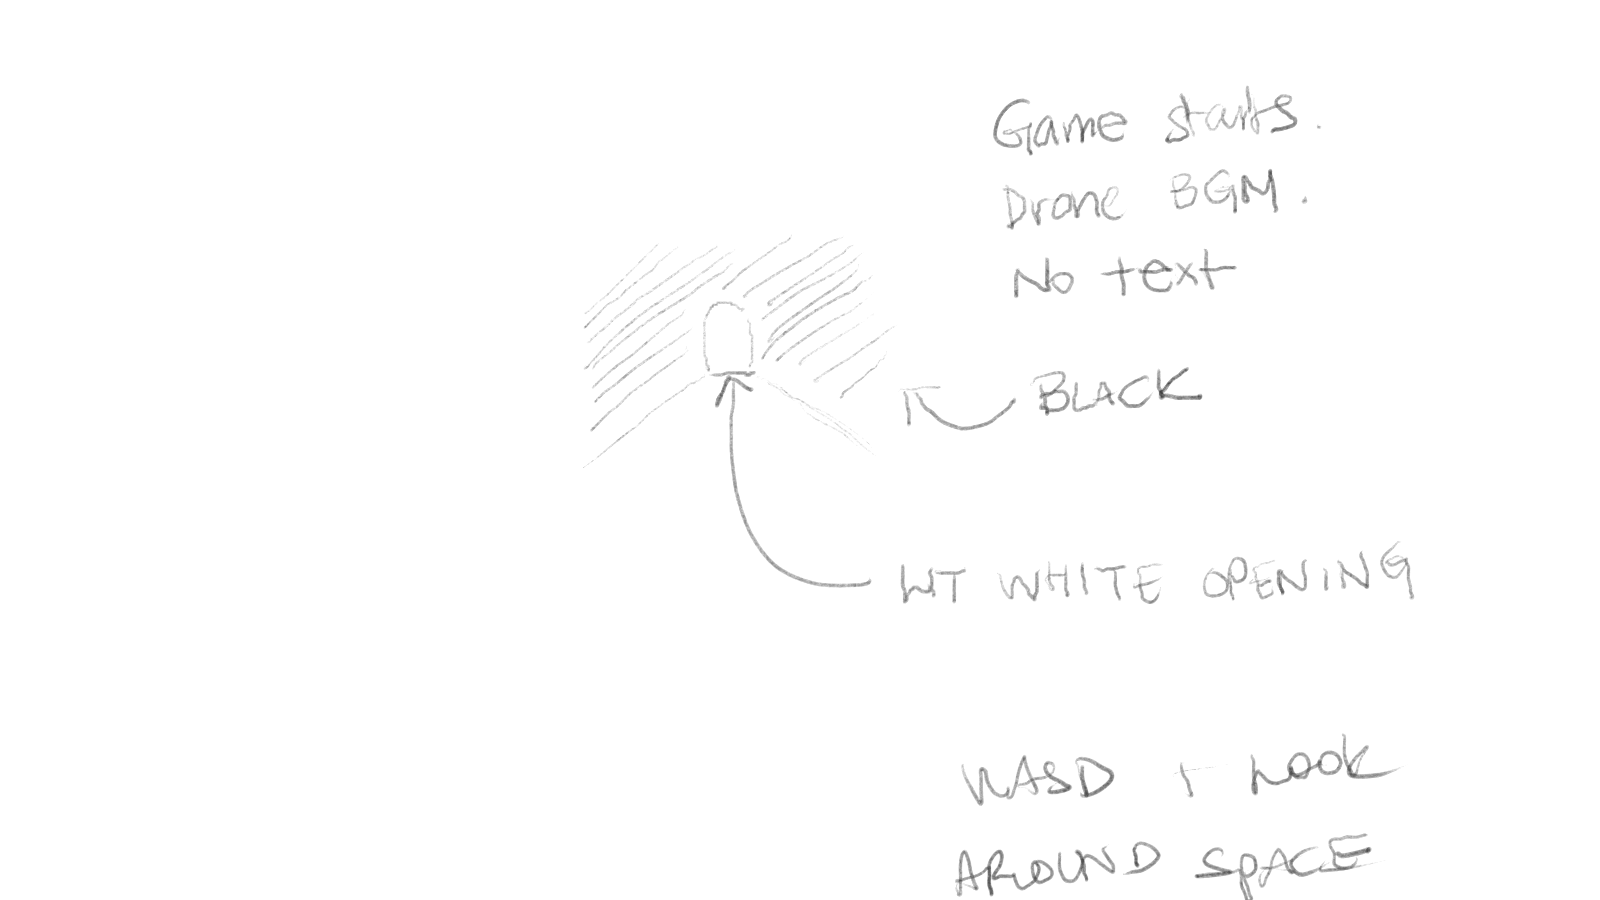 Game starts.
Drone BGM.
No text
BLACK
LIT WHITE OPENING
WASD + LOOK
AROUND SPACE